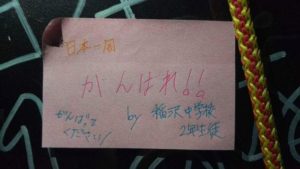 日本一周
がんばれ!!
by 稲沢中学校
2年生徒
がんばって
ください